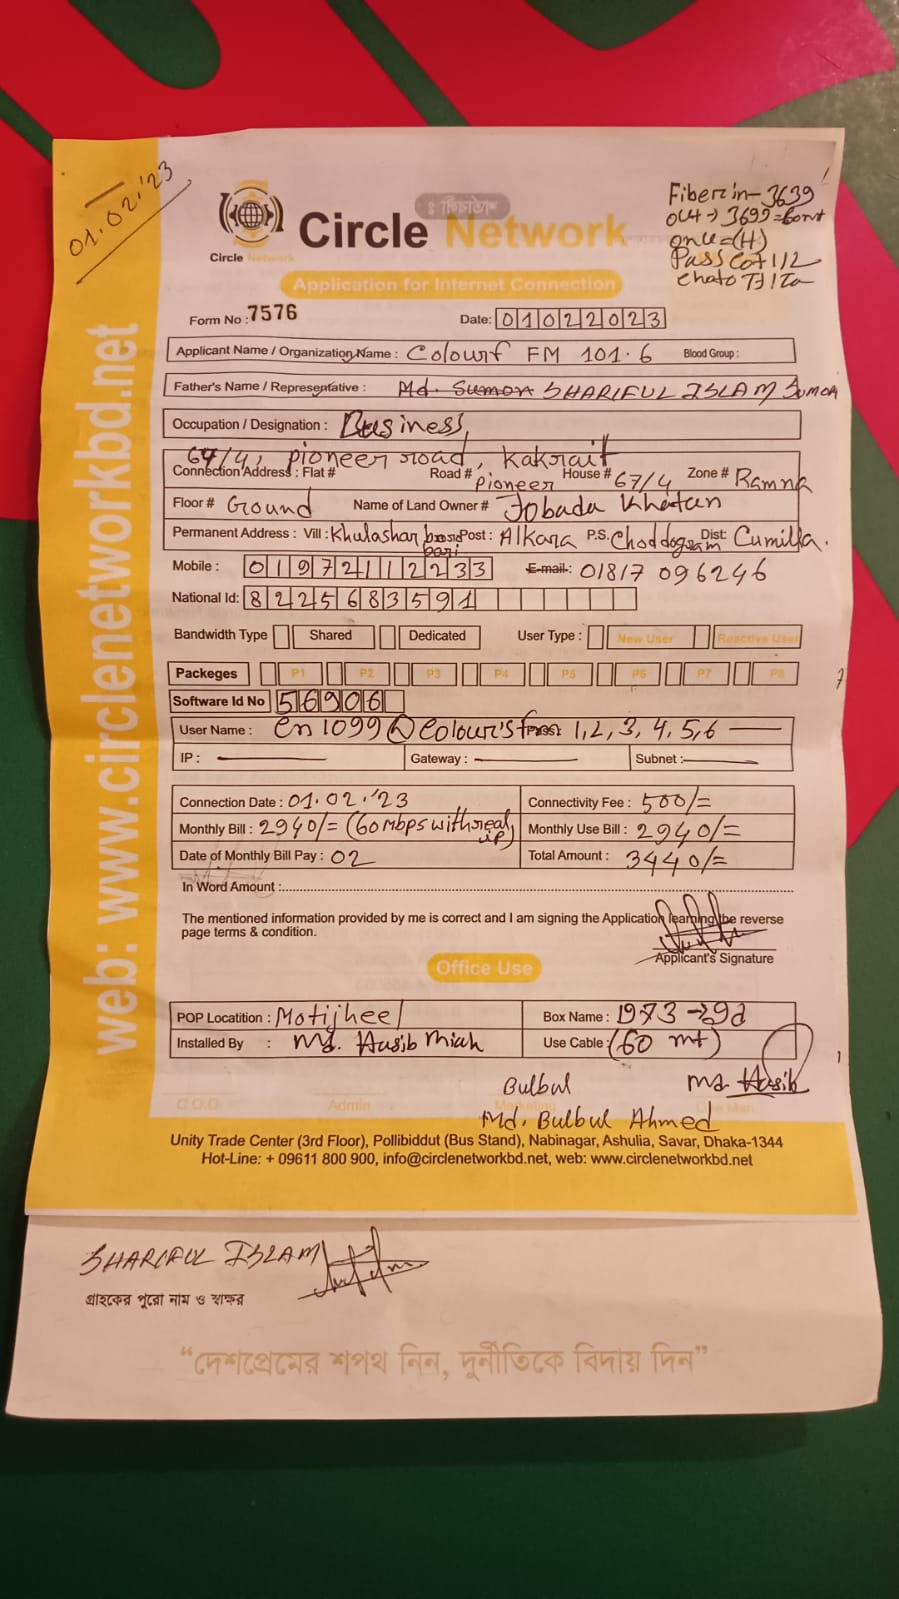 01.02.'23
Fiber in - 3639
out → 3699 =
onu = (H)
Circle Network
Circle Network
Application for Internet Connection
Form No : 7576
Date: 01022023
Applicant Name / Organization Name : Colourf FM 101.6 Blood Group :
Father's Name / Representative : Md. Sumon SHARIFUL ISLAM Sumon
Occupation / Designation : Business
67/4, pioneer road, Kakrail
Connection Address : Flat # Road # Pioneer House # 67/4 Zone # Ramna
Floor # Ground Name of Land Owner # Jobada Khatan
Permanent Address : Vill : Khulashar bari Post : Alkara P.S. Choddogram Dist: Cumilla.
Mobile : 01972112233 E-mail : 01817 096246
National Id: 8225683591
Bandwidth Type Shared Dedicated User Type : New User Reactive User
Packeges P1 P2 P3 P4 P5 P6 P7 P8
Software Id No 56906
User Name : Cn1099@Colour's 1,2,3,4,5,6
IP : Gateway : Subnet :
Connection Date : 01.02.'23 Connectivity Fee : 500/=
Monthly Bill : 2940/= (60 Mbps with real IP) Monthly Use Bill : 2940/=
Date of Monthly Bill Pay : 02 Total Amount : 3440/=
In Word Amount :
The mentioned information provided by me is correct and I am signing the Application learning the reverse
page terms & condition.
Applicant's Signature
Office Use
POP Locatition : Motijheel Box Name :
Installed By : Md. Hasib Miah Use Cable : (60 mt)
Bulbul Md. Hasib
C.O.O Admin Marketing Line Man
Md. Bulbul Ahmed
Unity Trade Center (3rd Floor), Pollibiddut (Bus Stand), Nabinagar, Ashulia, Savar, Dhaka-1344
Hot-Line: + 09611 800 900, info@circlenetworkbd.net, web: www.circlenetworkbd.net
web: www.circlenetworkbd.net
SHARIFUL ISLAM
গ্রাহকের পুরো নাম ও স্বাক্ষর
“দেশপ্রেমের শপথ নিন, দুর্নীতিকে বিদায় দিন”